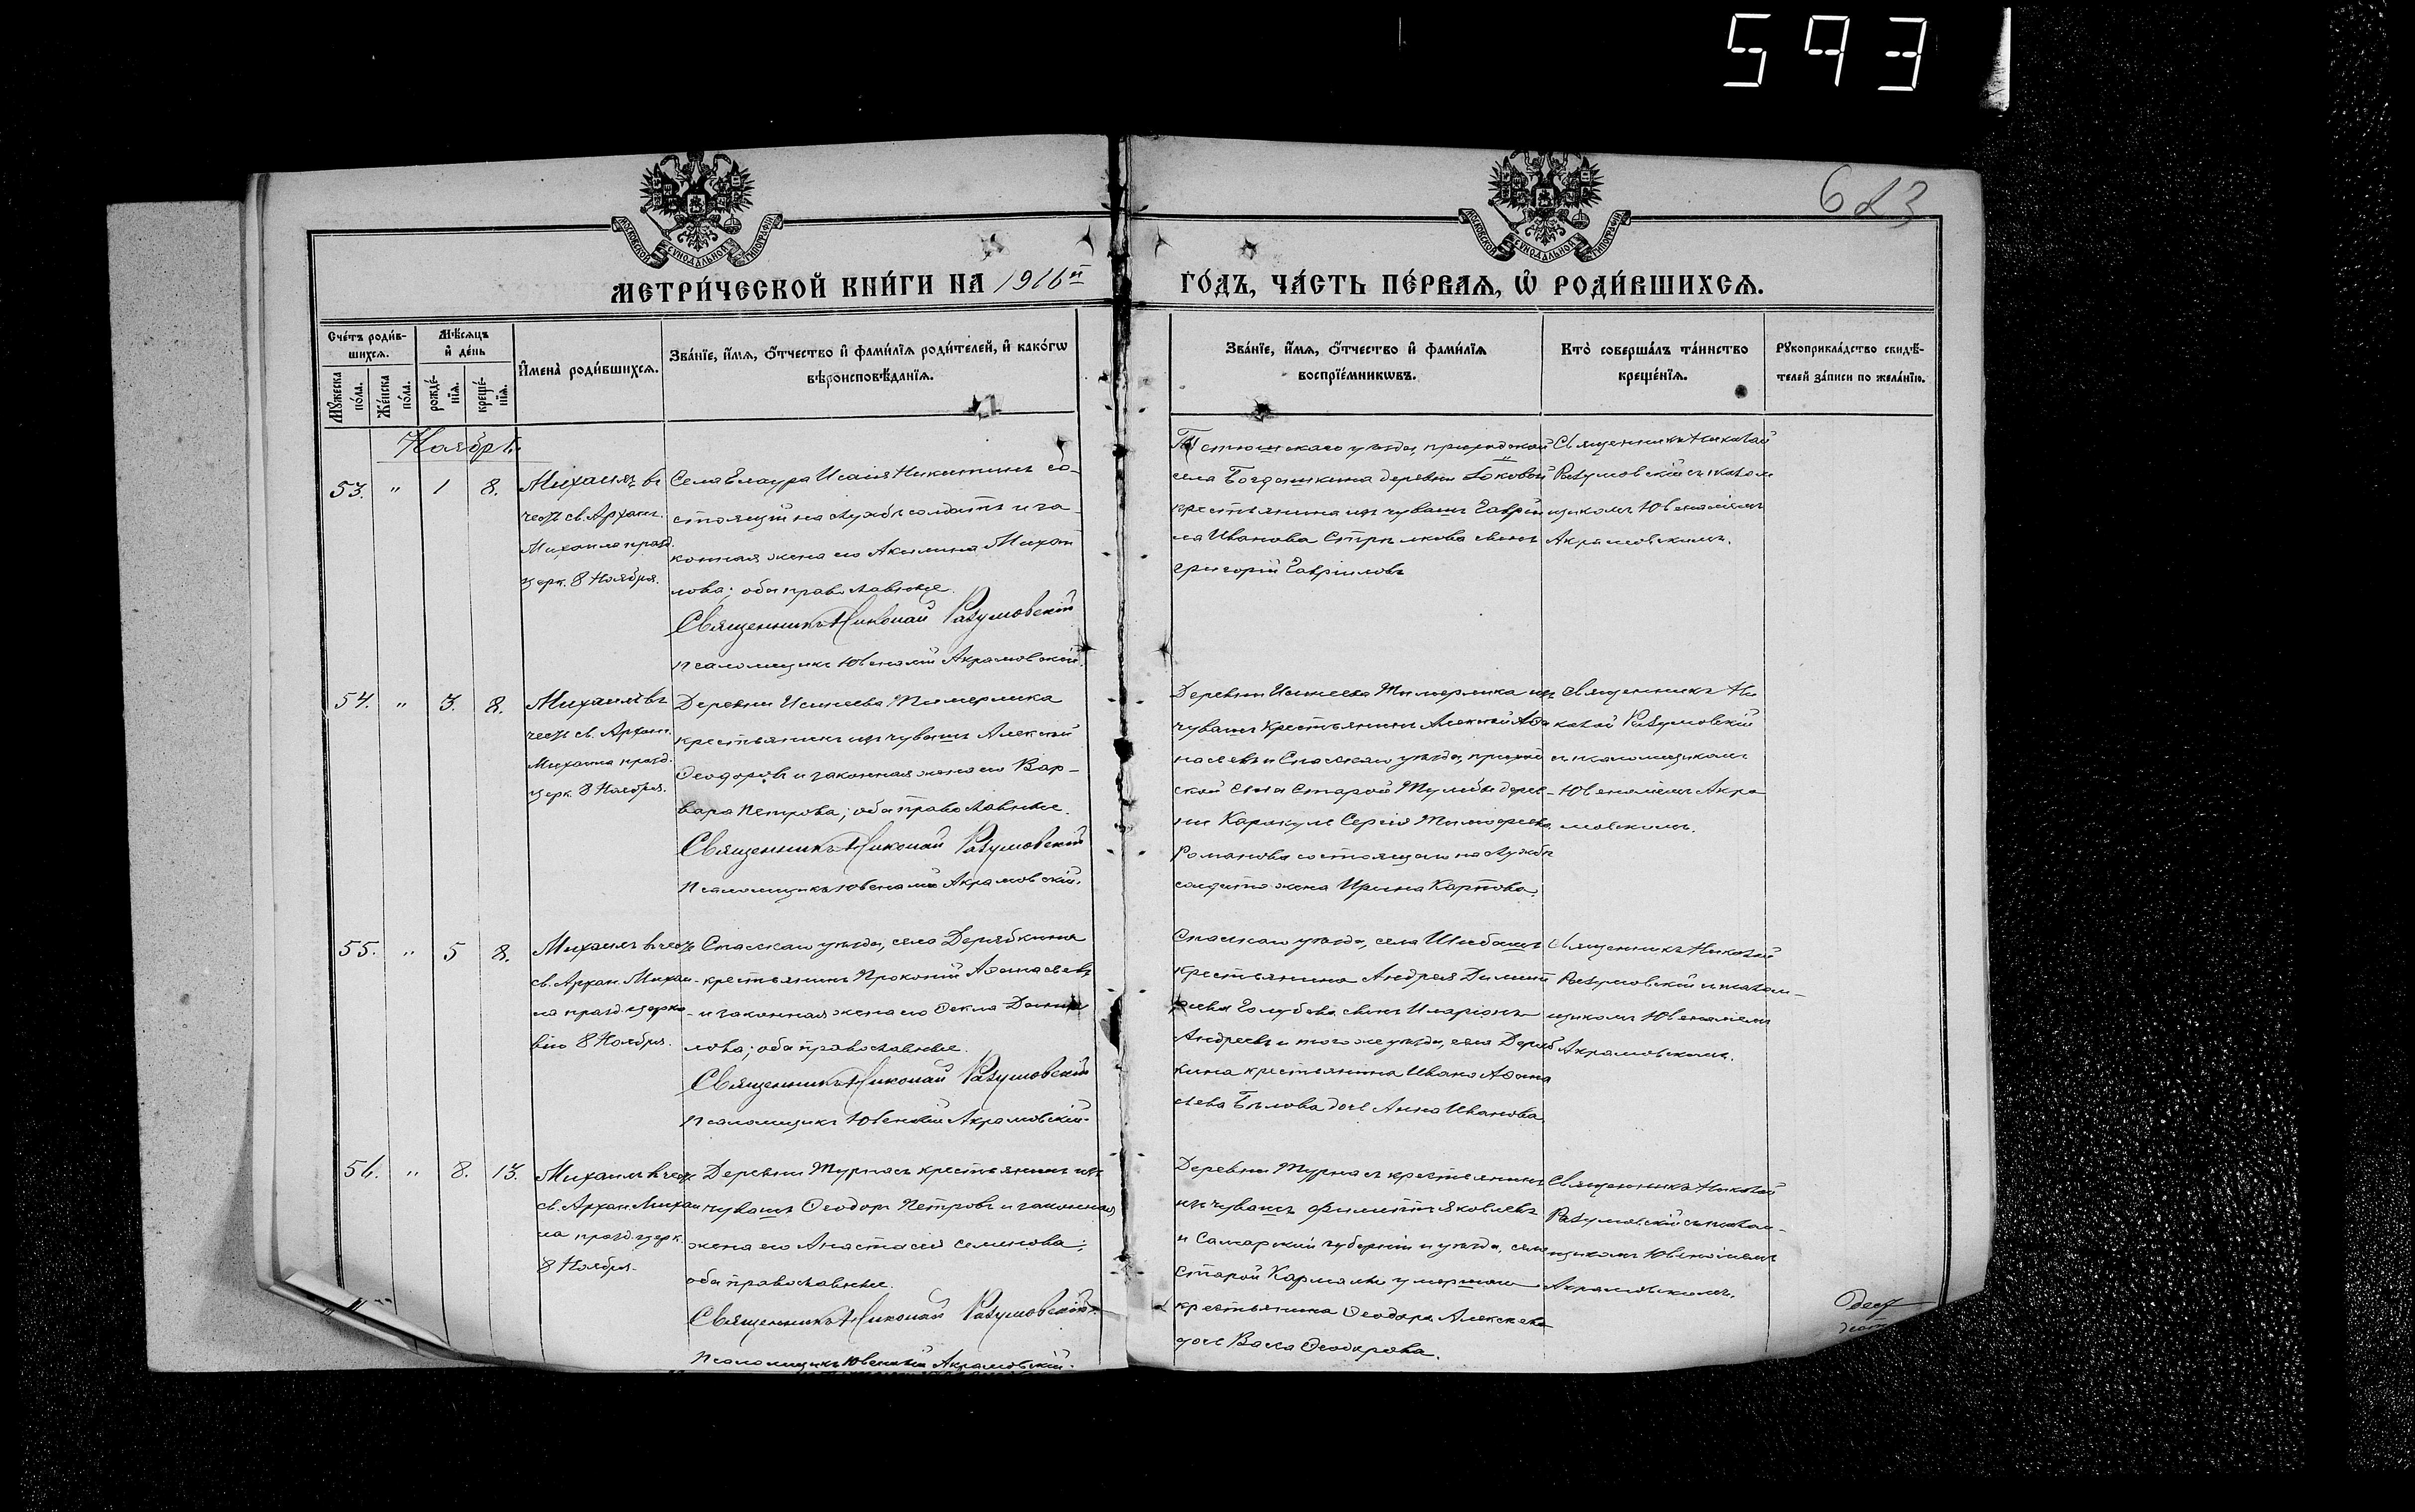 593
623
МОСКОВСКОЙ СѴНОДАЛЬНОЙ ТИПОГРАФІИ
МОСКОВСКОЙ СѴНОДАЛЬНОЙ ТИПОГРАФІИ
МЕТРИ́ЧЕСКОЙ КНИ́ГИ НА 1916й
ГО́ДЪ, ЧА́СТЬ ПЕ́РВАѦ, Ѡ҆ РОДИ́ВШИХСѦ.
Сче́тъ роди́в-
шихсѧ.
Мꙋ́жеска по́ла.
Же́нска по́ла.
Мѣ́сѧцъ
и҆ де́нь
рожде́-
нїѧ.
креще́-
нїѧ.
И҆мена̀ роди́вшихсѧ.
Зва́нїе, и҆́мѧ, ѻ҆́тчество и҆ фами́лїѧ роди́телей, и҆ како́гѡ
вѣроисповѣ́данїѧ.
Зва́нїе, и҆́мѧ, ѻ҆́тчество и҆ фами́лїѧ
воспрїе́мникѡвъ.
Кто̀ соверша́лъ та́инство
креще́нїѧ.
Рꙋкоприкла́дство свидѣ́-
телей за́писи по жела́нїю.
Ноябрь.
53. " 1 8.
Михаилъ въ
честь св. Архан.
Михаила празд.
церк. 8 Ноября.
Села Елаура Исаія Никитинъ со-
стоящій на службѣ солдатъ и за-
конная жена его Акилина Михаи
лова; оба православные.
Священникъ Николай Разумовскій
Псаломщикъ Ювеналій Акрамовскій.
уѣзда, приходской
села Богдашкина деревни Боковой
крестьянина изъ чувашъ Гаврій
ла Иванова Стрѣлкова сынъ
Григорій Гавріиловъ
Священникъ Николай
Разумовскій съ псалом
щикомъ Ювеналіемъ
Акрамовскимъ.
54. " 3. 8.
Михаилъ въ
честь св. Архан.
Михаила празд.
церк. 8 Ноября.
Деревни Исинеева Тимерлика
крестьянинъ изъ чувашъ Алексѣй
Ѳеодоровъ и законная жена его Вар-
вара Петрова; оба православные.
Священникъ Николай Разумовскій
Псаломщикъ Ювеналій Акрамовскій.
Деревни Исинеева Тимерлика изъ
чувашъ крестьянинъ Алексѣй Аѳа
насьевъ и Спасскаго уѣзда, приход
ской села Старой Тумбы дерев-
ни Каракуле Сергія Тимоѳеева
Романова состоящаго на службѣ
солдата жена Ирина Карпова.
Священникъ Ни
колай Разумовскій
съ псаломщикомъ
Ювеналіемъ Акра
мовскимъ.
55. " 5 8.
Михаилъ въ честь
св. Архан. Михаи-
ла празд. церко-
вію 8 Ноября.
Спасскаго уѣзда, села Дерябкина
крестьянинъ Прокопій Аѳанасьевъ
и законная жена его Ѳекла Дани
лова; оба православные.
Священникъ Николай Разумовскій
Псаломщикъ Ювеналій Акрамовскій.
Спасскаго уѣзда, села Шибаши
крестьянина Андрея Димит
ріева Голубева сынъ Иларіонъ
Андреевъ и того же уѣзда, села Деряб
кина крестьянина Ивана Аѳана
сьева Бѣлова дочь Анна Иванова.
Священникъ Николай
Разумовскій съ псалом-
щикомъ Ювеналіемъ
Акрамовскимъ.
56. " 8. 13.
Михаилъ въ честь
св. Архан. Михаи
ла празд. церк.
8 Ноября.
Деревни Турнасъ крестьянинъ изъ
чувашъ Ѳеодоръ Петровъ и законная
жена его Анастасія Семенова;
оба православные.
Священникъ Николай Разумовскій.
Псаломщикъ Ювеналій Акрамовскій.
Деревни Турнасъ крестьянинъ
изъ чувашъ Филиппъ Яковлевъ
и Самарской губерніи и уѣзда, села
Старой Кармалы умершаго
крестьянина Ѳеодора Алексѣева
дочь Васса Ѳеодорова.
Священникъ Николай
Разумовскій съ псалом-
щикомъ Ювеналіемъ
Акрамовскимъ.